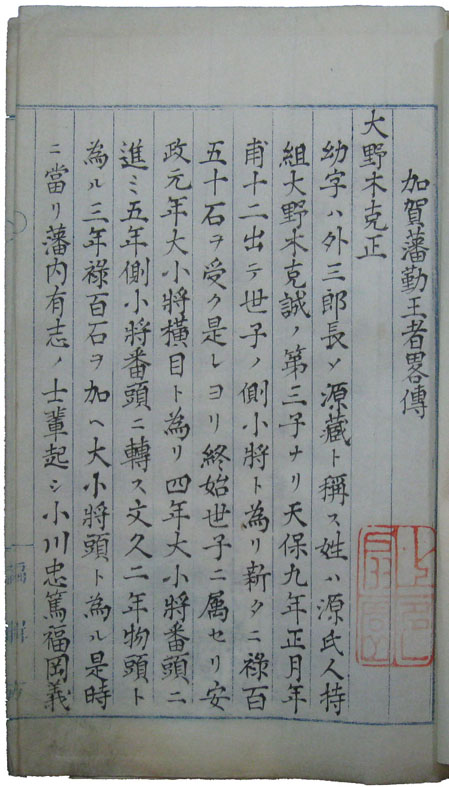 加賀藩勤王者畧傳
大野木克正
幼字ハ外三郎長ソ源藏ト稱ス姓ハ源氏人持
組大野木克誠ノ第三子ナリ天保九年正月年
甫十二出テ世子ノ側小将ト為リ新タニ禄百
五十石ヲ受ク是レヨリ終始世子ニ属セリ安
政元年大小将横目ト為リ四年大小将番頭ニ
進ミ五年側小将番頭ニ轉ス文久二年物頭ト
為ル三年禄百石ヲ加ヘ大小将頭ト為ル是時
ニ當リ藩内有志ノ士輩起シ小川忠篤福岡義